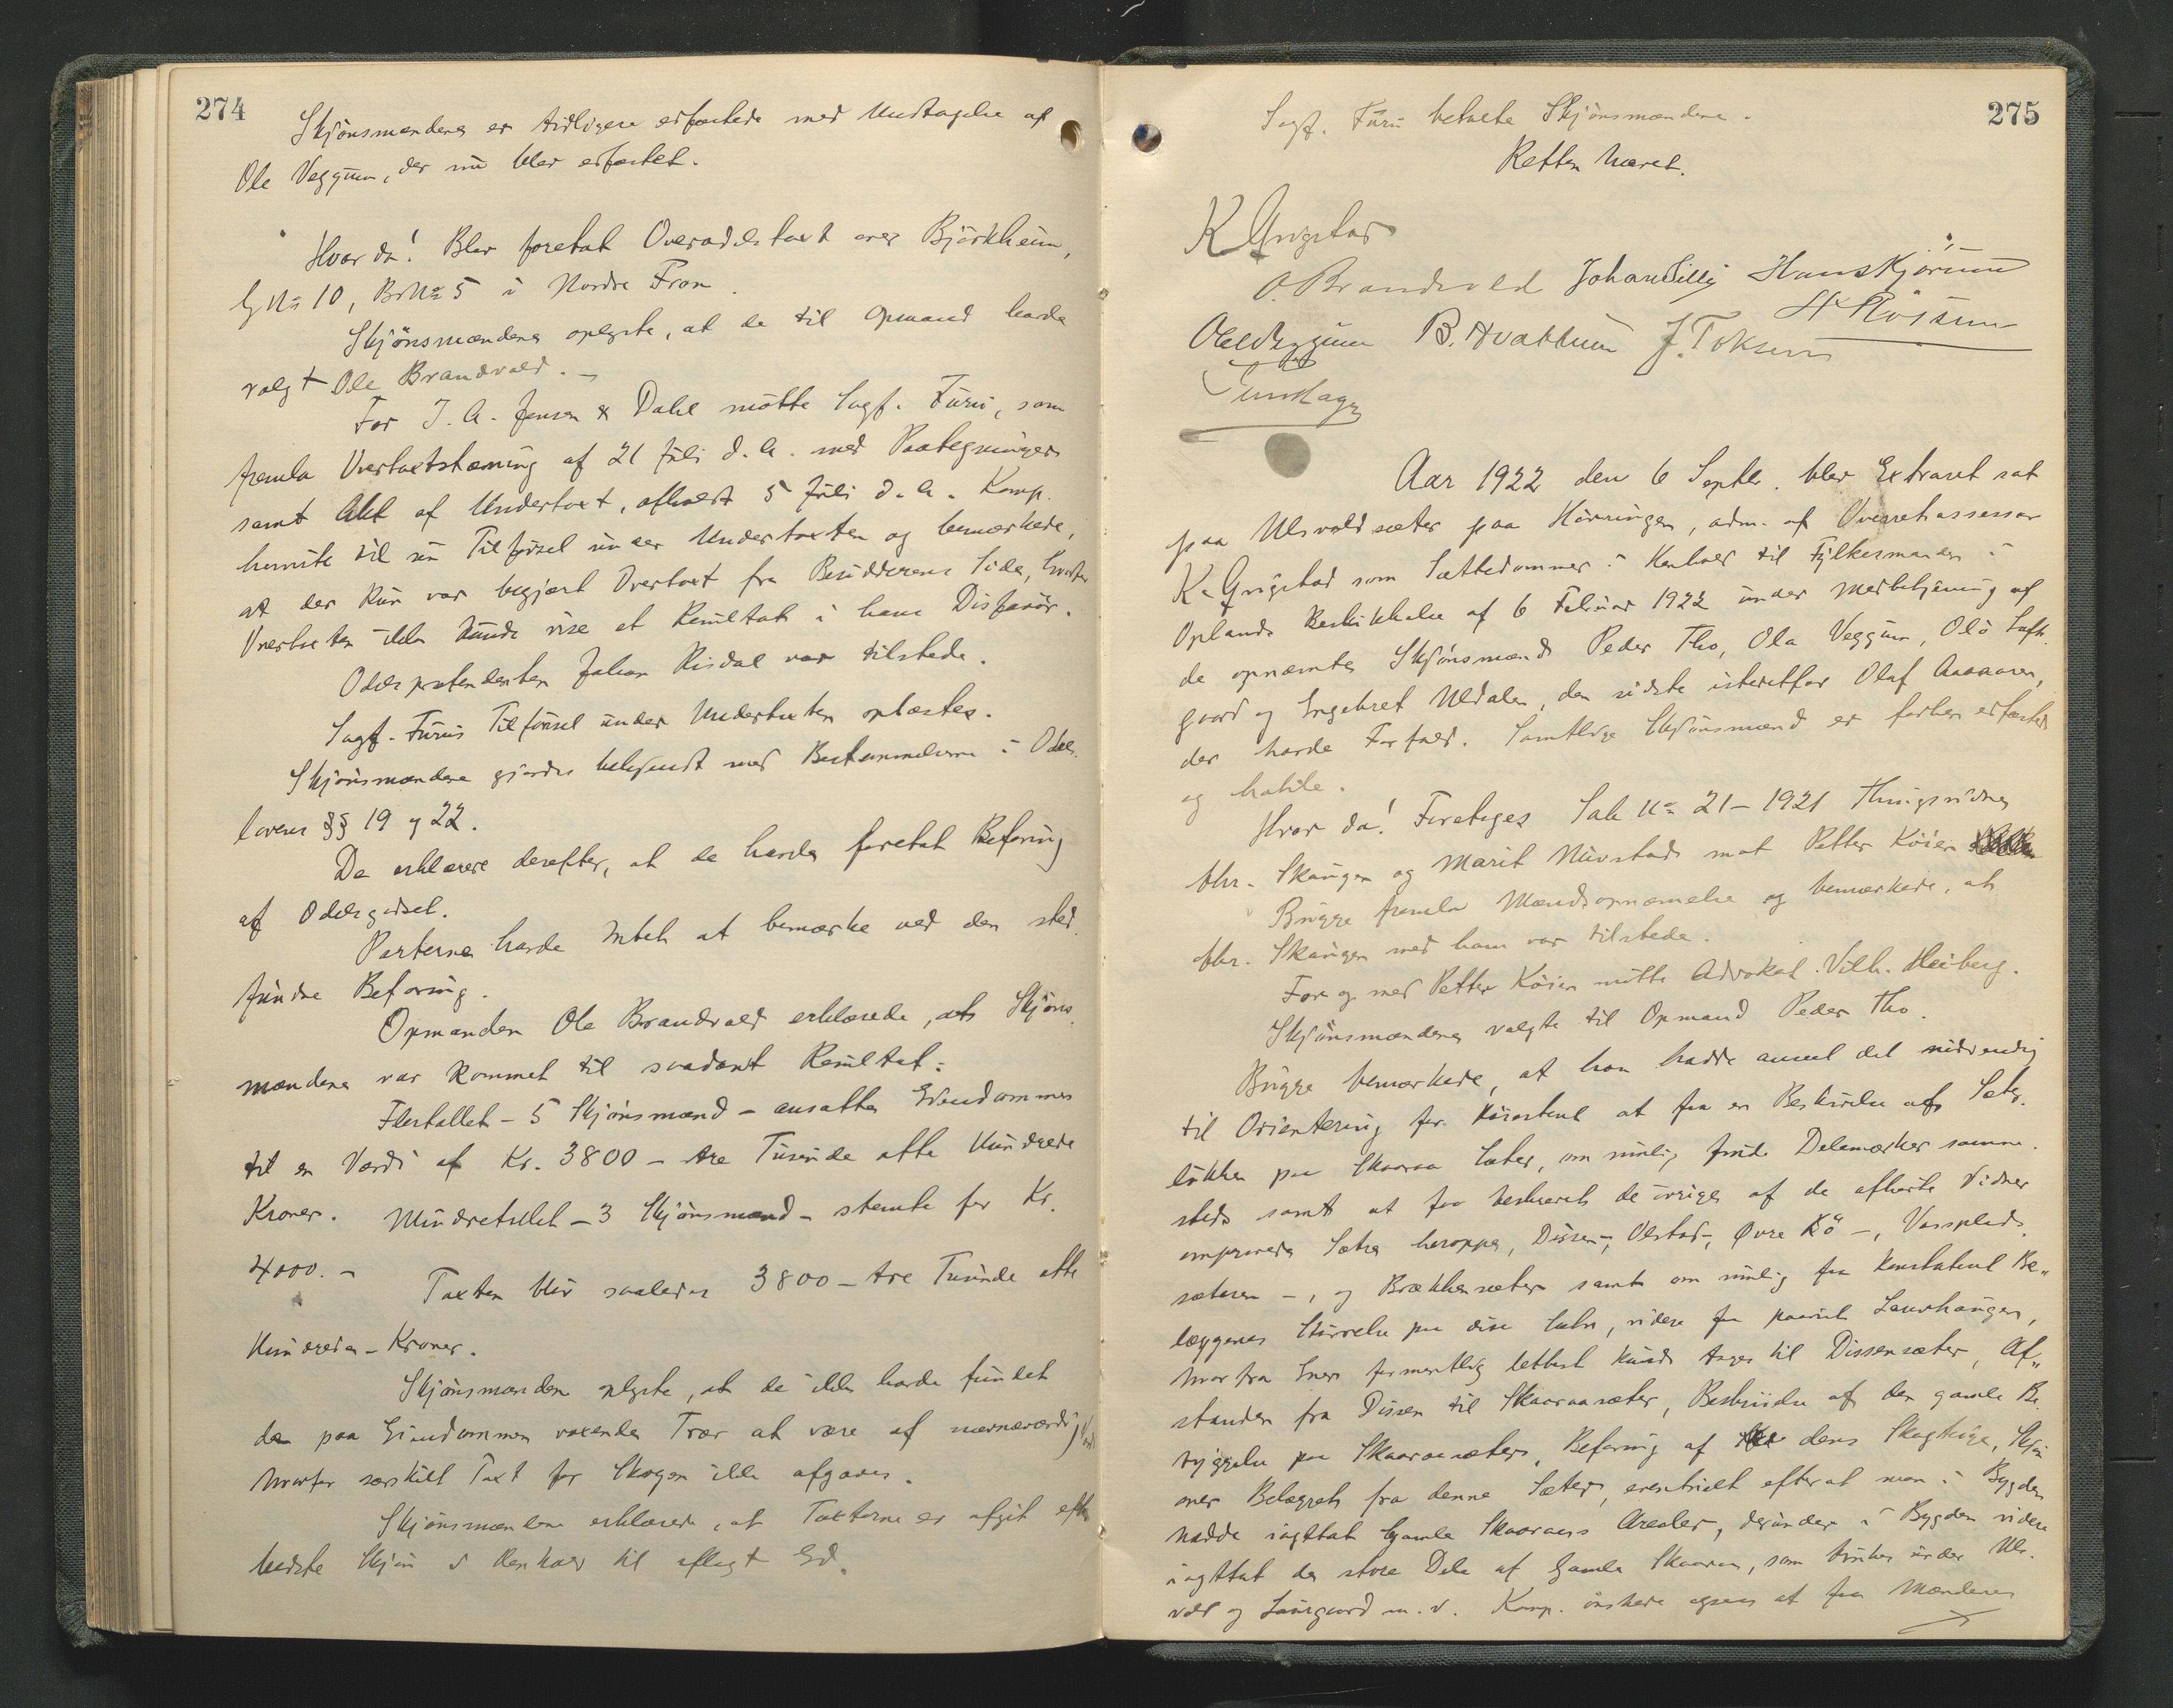 274
Skjönsmændene er tidligere edfæstede med Undtagelse af
Ole Veggum, der nu blev edfæstet.
Hvorda! Blev foretat Overodelstaxt over Björkheim,
G. No 10, BrNo 5 i Nordre Fron.
Skjönsmændene oplyste, at de til Opmand havde
valgt Ole Brandvold. -
For J. A. Jensen & Dahl mötte Sagf. Furu, som
fremla Overtaxtstævning af 21 Juli d. A. med Paategninger
samt Akt af Undertaxt, afholdt 5 Juli d. A. Komp.
henviste til sin Tilförsel under Undertaxten og bemærkede,
at der kun var begjært Overtaxt fra Besidderens Side, hvorfor
Overtaxten ikke kunde vise et Resultat i hans Disfavör.
Odelspretendenten Johan Risdal var tilstede.
Sagf. Furus Tilförsel under Undertaxten oplæstes.
Skjönsmændene gjordes bekjendt med Bestemmelserne i Odels
lovens §§ 19 og 22.
De erklærte derefter, at de havde foretat Befaring
af Odelsgodset.
Parterne havde Intet at bemærke ved den sted
fundne Befaring.
Opmanden Ole Brandvold erklærede, at Skjöns
mændene var kommet til saadant Resultat:
Flertallet - 5 Skjönsmænd - ansatte Eiendommen
til en Værdi af Kr. 3800 - tre Tusinde otte Hundrede
Kroner. Mindretallet - 3 Skjönsmænd - stemte for Kr.
4000. -
Taxten blir saaledes 3800 - tre Tusinde otte
Hundrede - Kroner.
Skjönsmændene oplyste, at de ikke havde fundet
de paa Eiendommen voxende Trær at være af nævneværdig Værdi
hvorfor særskilt Taxt for Skogen ikke afgaves.
Skjönsmændene erklærede, at Taxterne er afgit efter
bedste Skjön i Henhold til aflagt Ed.
275
Sagf. Furu betalte Skjönsmændene.
Retten hævet.
K Grigstad
O. Brandvold Johan Lillig Hans Kjörum
H Rössum
Ole Veggum B. Hvattum J. Toksum
Aar 1922 den 6 Septbr. blev Extraret sat
paa Ulsvoldsæter paa Hörringen, adm. af Overretsassessor
K. Grigstad som Sættedommer i Henhold til Fylkesmanden i
Oplands Beskikkelse af 6 Februar 1922 under Medbetjening af
de opnævnte Skjönsmænd Peder Tho, Ola Veggum, Olö Luft
gaard og Engebret Uldalen, den sidste istedetfor Olaf Aaaaaren,
der havde Forfald. Samtlige Skjönsmænd er forhen edfæstede
og habile.
Hvor da! Foretoges Sak No 21 - 1921 Thingsvidne
Chr. Skaugen og Marit Nuvstad mot Petter Köien
Brügge fremla Mændsopnævnelse og bemærkede, at
Chr. Skaugen med ham var tilstede.
For og med Petter Köien mötte Advokat Vilh. Heiberg.
Skjönsmændene valgte til Opmand Peder Tho.
Brügge bemærkede, at han hadde anseet det nödvendig
til Orientering for Kirestene at faa en Beskrivelse af Sæter
lökken paa Skaaraa Sæter, om mulig finde Delemærker samme-
steds samt at faa beskrevet de övrige af de afhörte Vidner
omprovede Sætre heroppe, Dissen-, Olstad-, Øvre Kö -, Vassplads
sæteren -, og Brækkensæter samt om mulig faa konstateret Be„
læggenes Störrelse paa disse Sætre, videre faa paavist Laurhaugen,
hvorfra Enen formentlig lettest kunde tages til Dissensæter, Af„
standen fra Dissen til Skaaraasæter, Beskrivelse af den gamle Be
byggelse paa Skaaraasæter, Befaring af dens Skogteige, Skjön
over Belægget fra denne Sæter, eventuelt efterat man i Bygden
hadde iagttat Gamle Skaaraaens Arealer, derunder i Bygden videre
iagttat de store Dele af Gamle Skaaraa, som brukes under Ulv
vold og Laurgaard m. v. Komp. önskede ogsaa at faa Mændenes